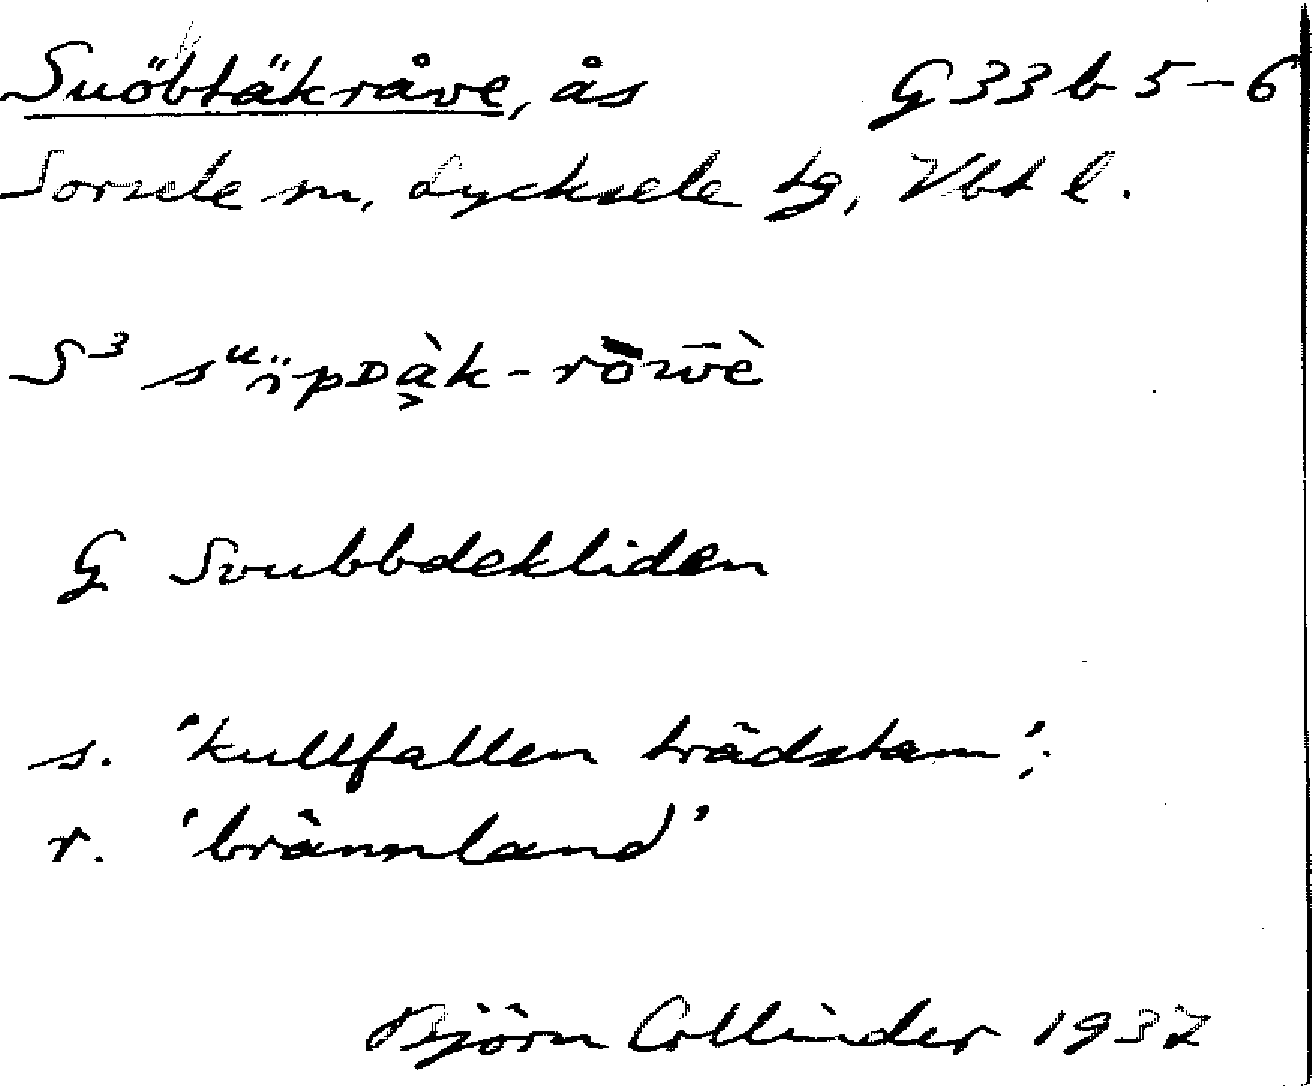 Suöbtäkråve, ås G 33 b 5-6
Sorsele sn, Lycksele tg, Vbt l.
S³ sᵘïpᴅàk-rōw̄è
G Svubbdekliden
s. 'kullfallen trädstam';
r. 'brännland'
Björn Collinder 1937